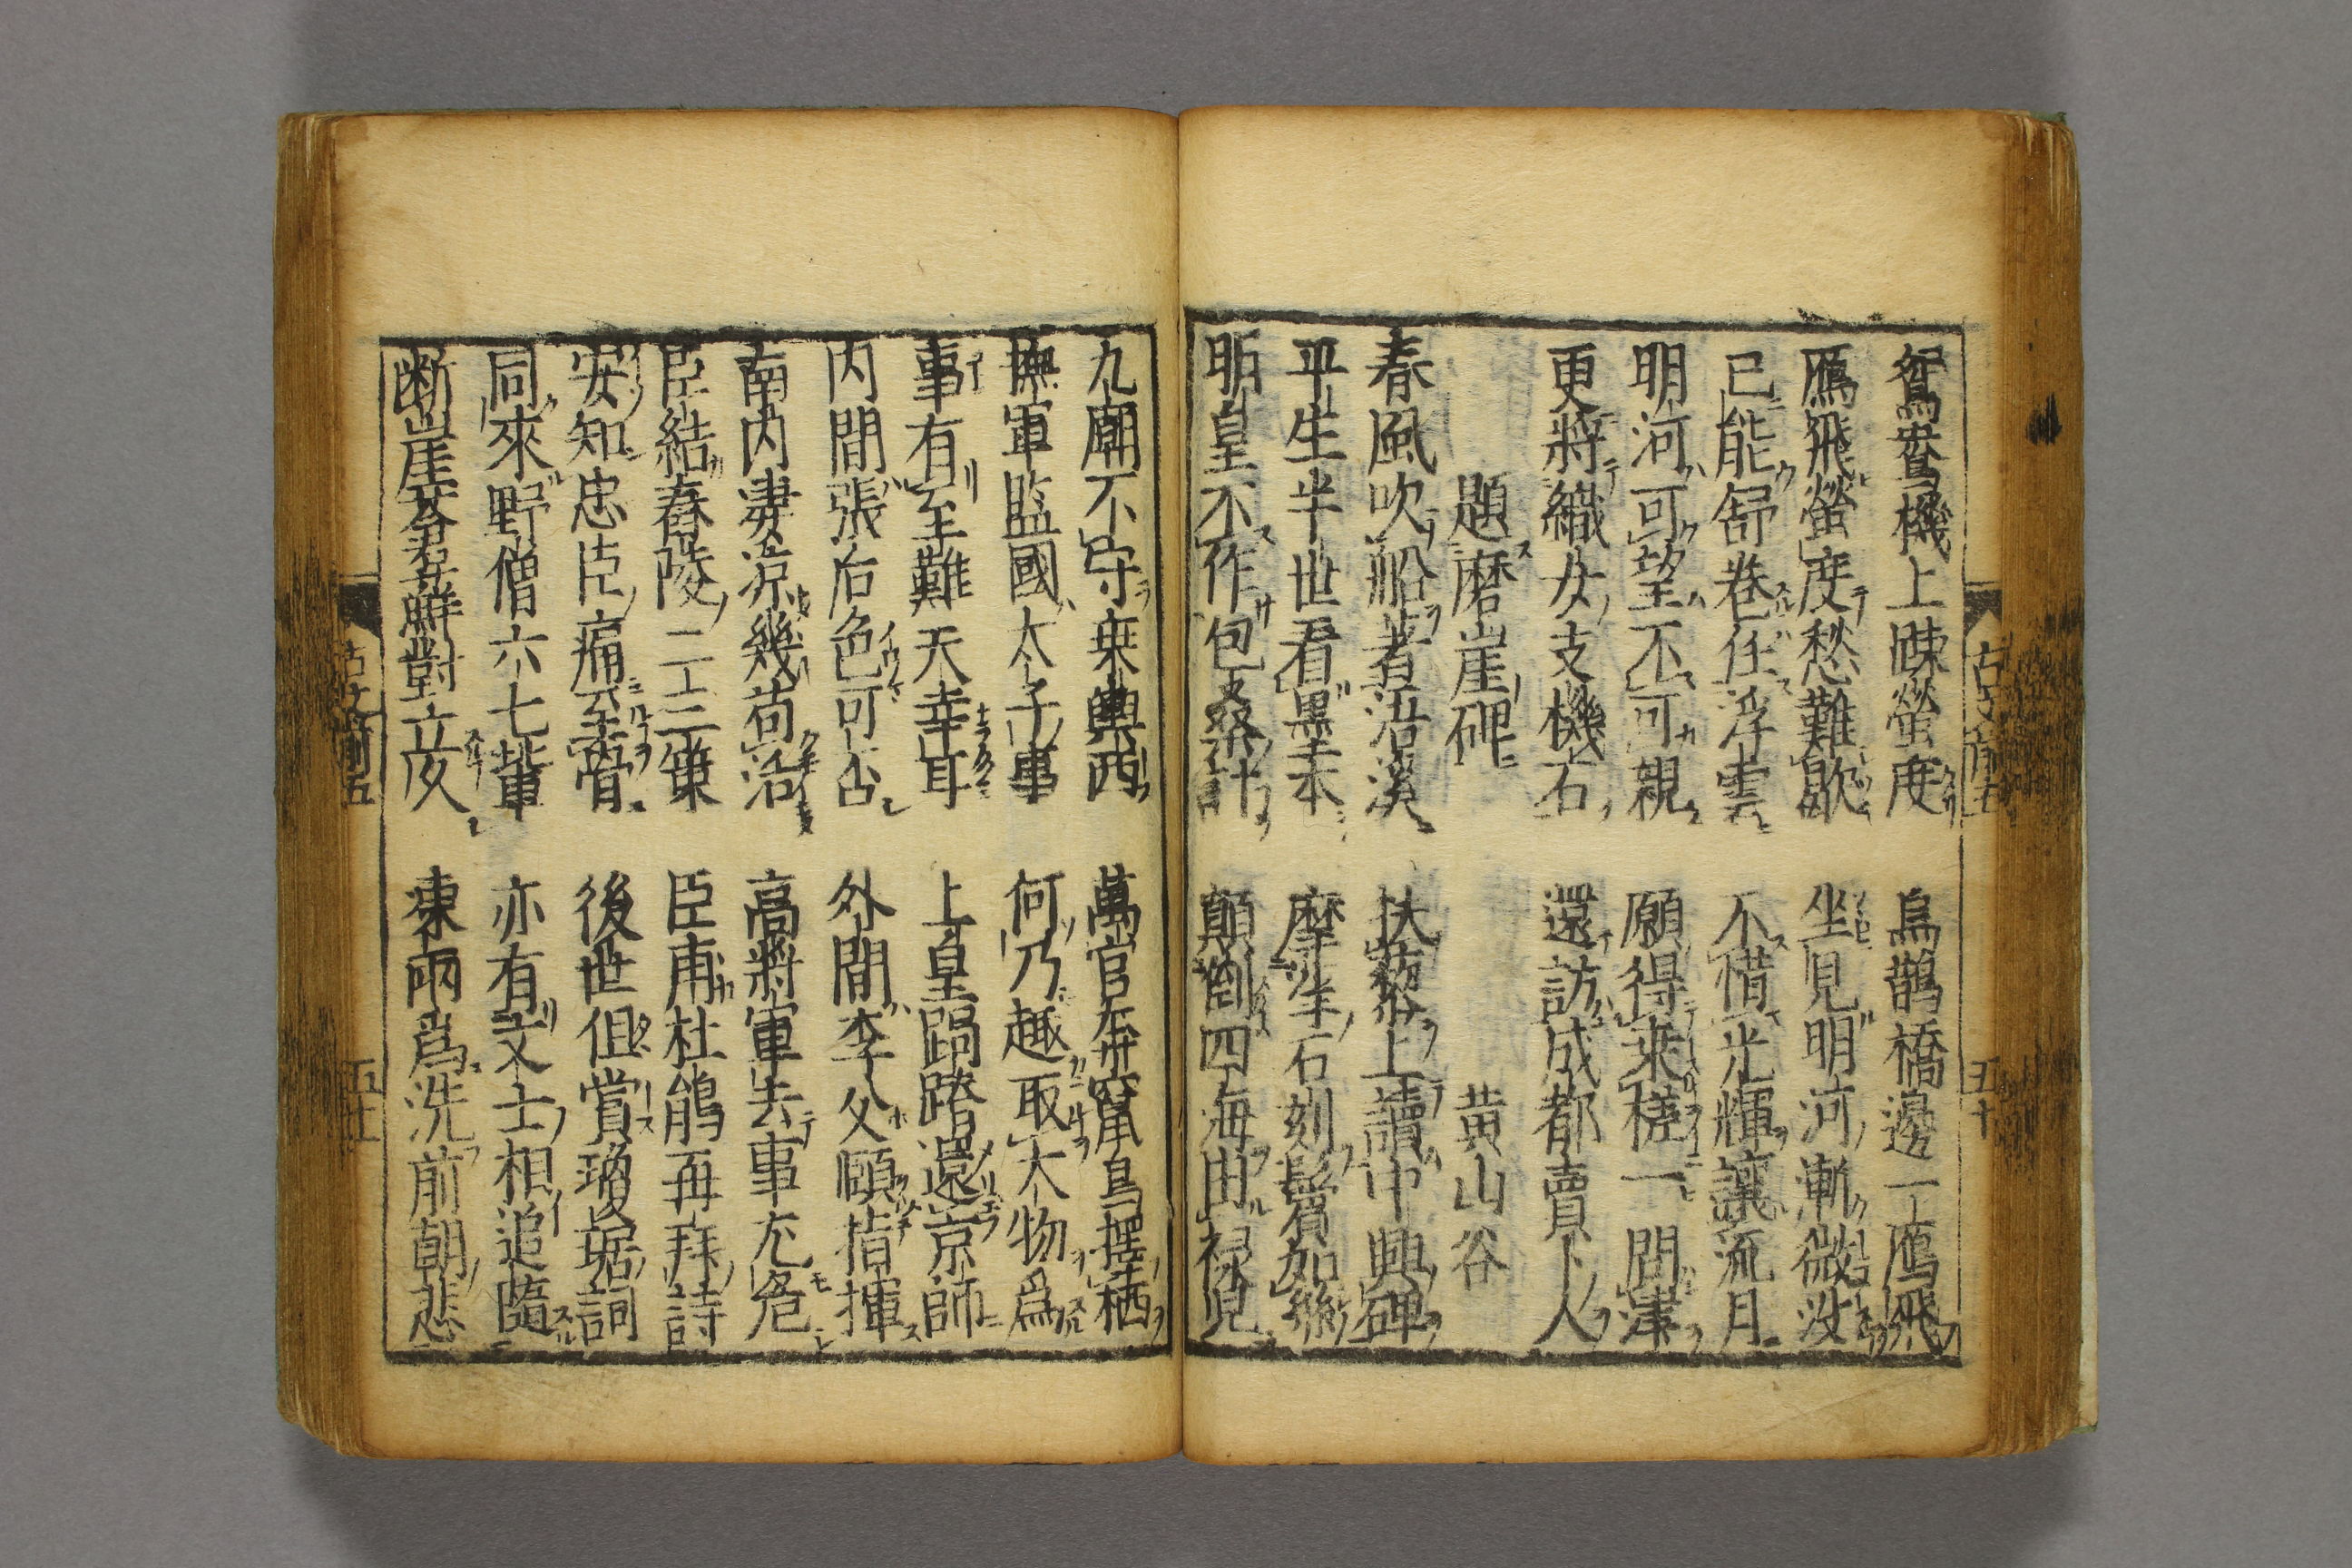 鴛鴦機上踈螢度　烏鵲橋邊一鴈飛
鴈飛螢度愁難歇　坐見明河漸微没
已能舒卷任浮雲　不惜光輝讓流月
明河可望不可親　願得乘槎一問津
更將織女支機石　還訪成都賣卜人
題磨崖碑　黄山谷
春風吹船著浯溪　扶藜上讀中興碑
平生半世看墨本　摩挲石刻鬢如絲
明皇不作包桑計　顛倒四海由禄児
九廟不守乗輿西　萬官奔竄鳥擇栖
撫軍監國太子事　何乃趣取大物爲
事有至難天幸耳　上皇跼蹐還京師
内間張后色可否　外間李父頤指揮
南内凄凉幾苟活　高將軍去事尤危
臣結舂陵二三策　臣甫杜鵑再拜詩
安知忠臣痛至骨　後世但賞瓊琚詞
同來野僧六七輩　亦有文士相追隨
断崖蒼蘚對立久　凍雨爲洗前朝悲
古文前五
五十
古文前五